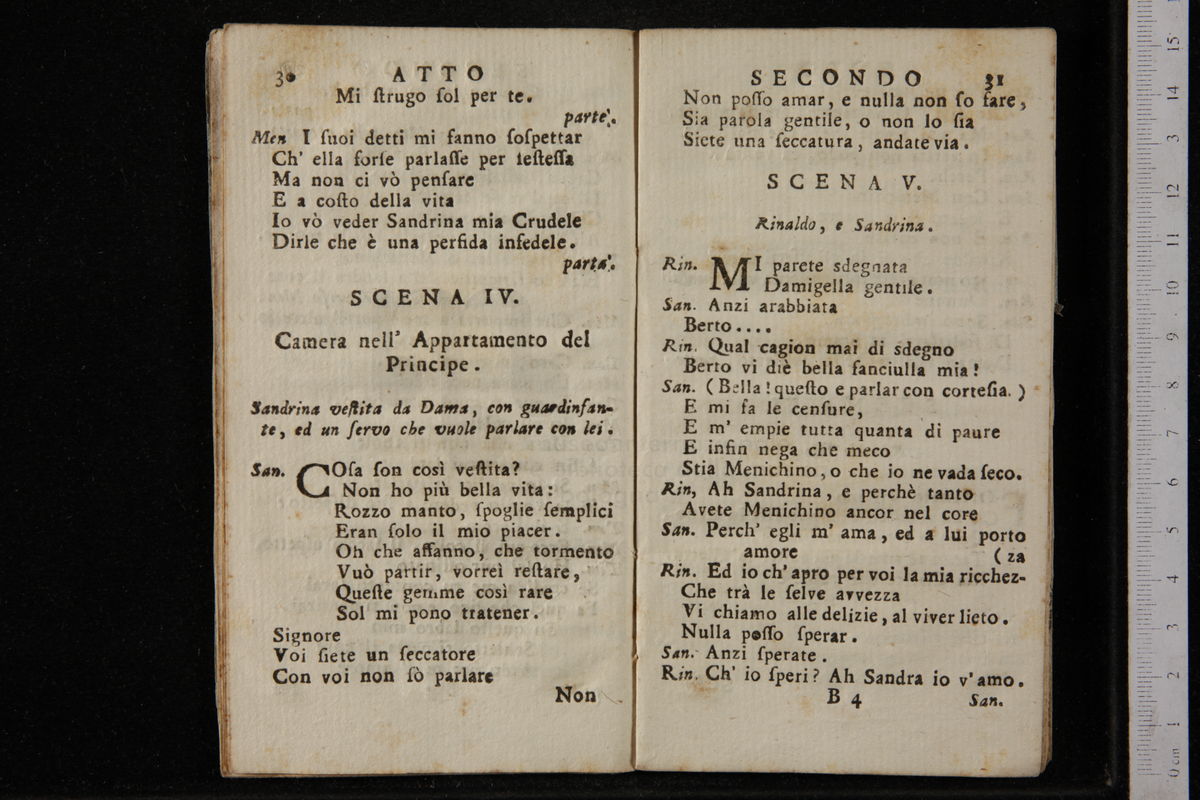 30 ATTO
Mi ſtrugo ſol per te.
parte.
Men I ſuoi detti mi fanno ſoſpettar
Ch' ella forſe parlaſſe per ſeſteſſa
Ma non ci vò penſare
E a coſto della vita
Io vò veder Sandrina mia Crudele
Dirle che è una perfida infedele.
parta.
SCENA IV.
Camera nell' Appartamento del
Principe.
Sandrina veſtita da Dama, con guardinfan-
te, ed un ſervo che vuole parlare con lei.
San. COſa ſon così veſtita?
Non ho più bella vita:
Rozzo manto, ſpoglie ſemplici
Eran ſolo il mio piacer.
Oh che affanno, che tormento
Vuò partir, vorreì reſtare,
Queſte gemme così rare
Sol mi pono tratener.
Signore
Voi ſiete un ſeccatore
Con voi non ſò parlare
Non
SECONDO 31
Non poſſo amar, e nulla non ſo fare,
Sia parola gentile, o non lo ſia
Siete una ſeccatura, andate via.
SCENA V.
Rinaldo, e Sandrina.
Rin. MI parete sdegnata
Damigella gentile.
San. Anzi arabbiata
Berto....
Rin. Qual cagion mai di sdegno
Berto vi diè bella fanciulla mia!
San. (Bella! queſto e parlar con corteſia.)
E mi fa le cenſure,
E m' empie tutta quanta di paure
E infin nega che meco
Stia Menichino, o che io ne vada ſeco.
Rin, Ah Sandrina, e perchè tanto
Avete Menichino ancor nel core
San. Perch' egli m' ama, ed a lui porto
amore (za
Rin. Ed io ch' apro per voi la mia ricchez-
Che trà le ſelve avvezza
Vi chiamo alle delizie, al viver lieto.
Nulla poſſo ſperar.
San. Anzi ſperate.
Rin. Ch' io ſperi? Ah Sandra io v' amo.
B 4 San.
0 cm 1 2 3 4 5 6 7 8 9 10 11 12 13 14 15